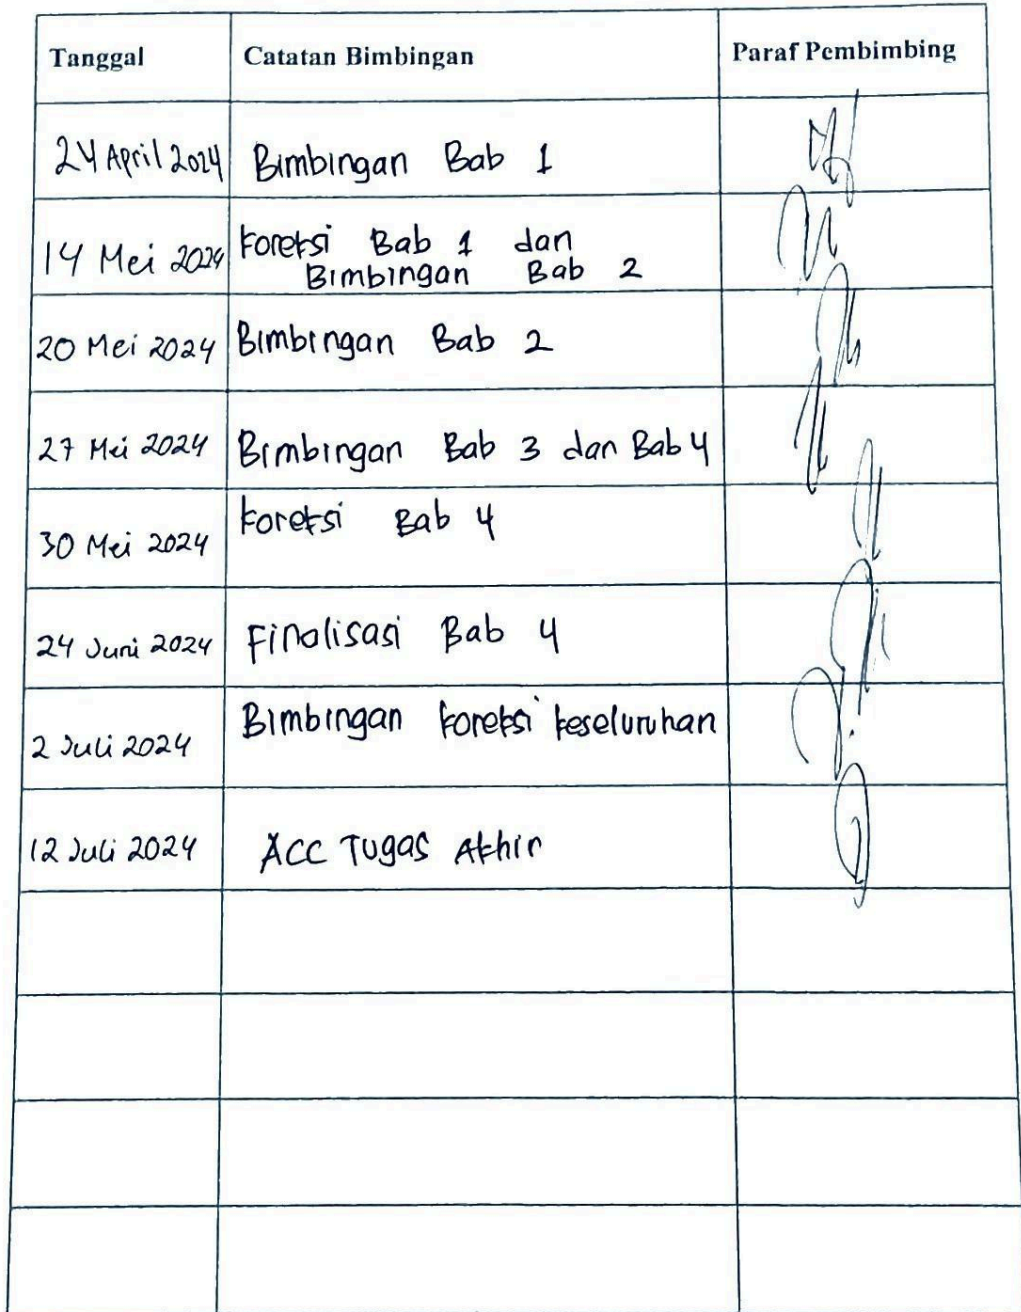 Tanggal Catatan Bimbingan Paraf Pembimbing
24 April 2024 Bimbingan Bab 1
14 Mei 2024 Koreksi Bab 1 dan
Bimbingan Bab 2
20 Mei 2024 Bimbingan Bab 2
27 Mei 2024 Bimbingan Bab 3 dan Bab 4
30 Mei 2024 Koreksi Bab 4
24 Juni 2024 Finalisasi Bab 4
2 Juli 2024 Bimbingan Koreksi Keseluruhan
12 Juli 2024 ACC Tugas Akhir